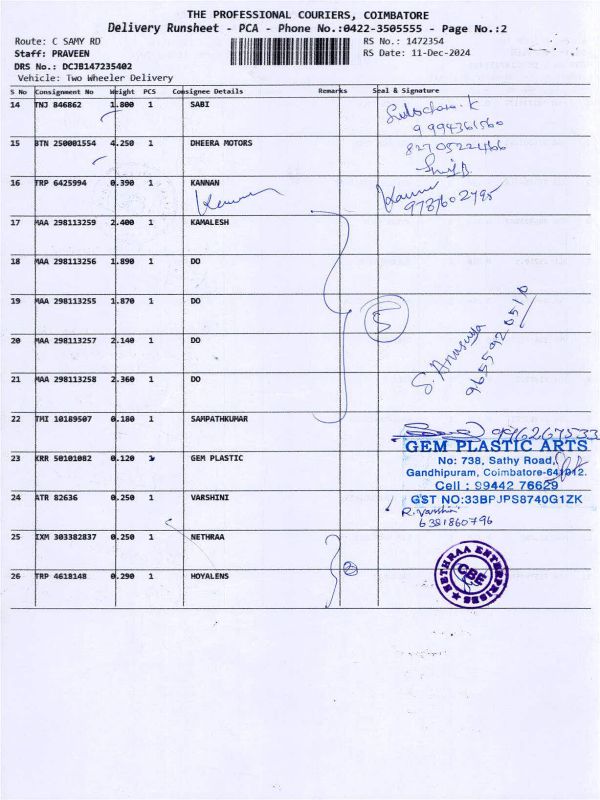 THE PROFESSIONAL COURIERS, COIMBATORE
Delivery Runsheet - PCA - Phone No.:0422-3505555 - Page No.:2
Route: C SAMY RD RS No.: 1472354
Staff: PRAVEEN RS Date: 11-Dec-2024
DRS No.: DCJB147235402
Vehicle: Two Wheeler Delivery
S No Consignment No Weight PCS Consignee Details Remarks Seal & Signature
14 TNJ 846862 1.800 1 SABI
9994361560
15 BTN 250001554 4.250 1 DHEERA MOTORS
16 TRP 6425994 0.390 1 KANNAN
9787602795
17 MAA 298113259 2.400 1 KAMALESH
18 MAA 298113256 1.890 1 DO
19 MAA 298113255 1.870 1 DO
5
20 MAA 298113257 2.140 1 DO
21 MAA 298113258 2.360 1 DO
S. Anasuya
9655920510
22 TMI 10189507 0.180 1 SAMPATHKUMAR
996267533
23 KRR 50101082 0.120 1 GEM PLASTIC
GEM PLASTIC ARTS
No: 738, Sathy Road,
Gandhipuram, Coimbatore-641012.
Cell : 99442 76629
GST NO:33BPJPS8740G1ZK
24 ATR 82636 0.250 1 VARSHINI
R. Varshini
6381860796
25 IXM 303382837 0.250 1 NETHRAA
26 TRP 4618148 0.290 1 HOYALENS
2
NETHRAA ENTERPRISES
CBE